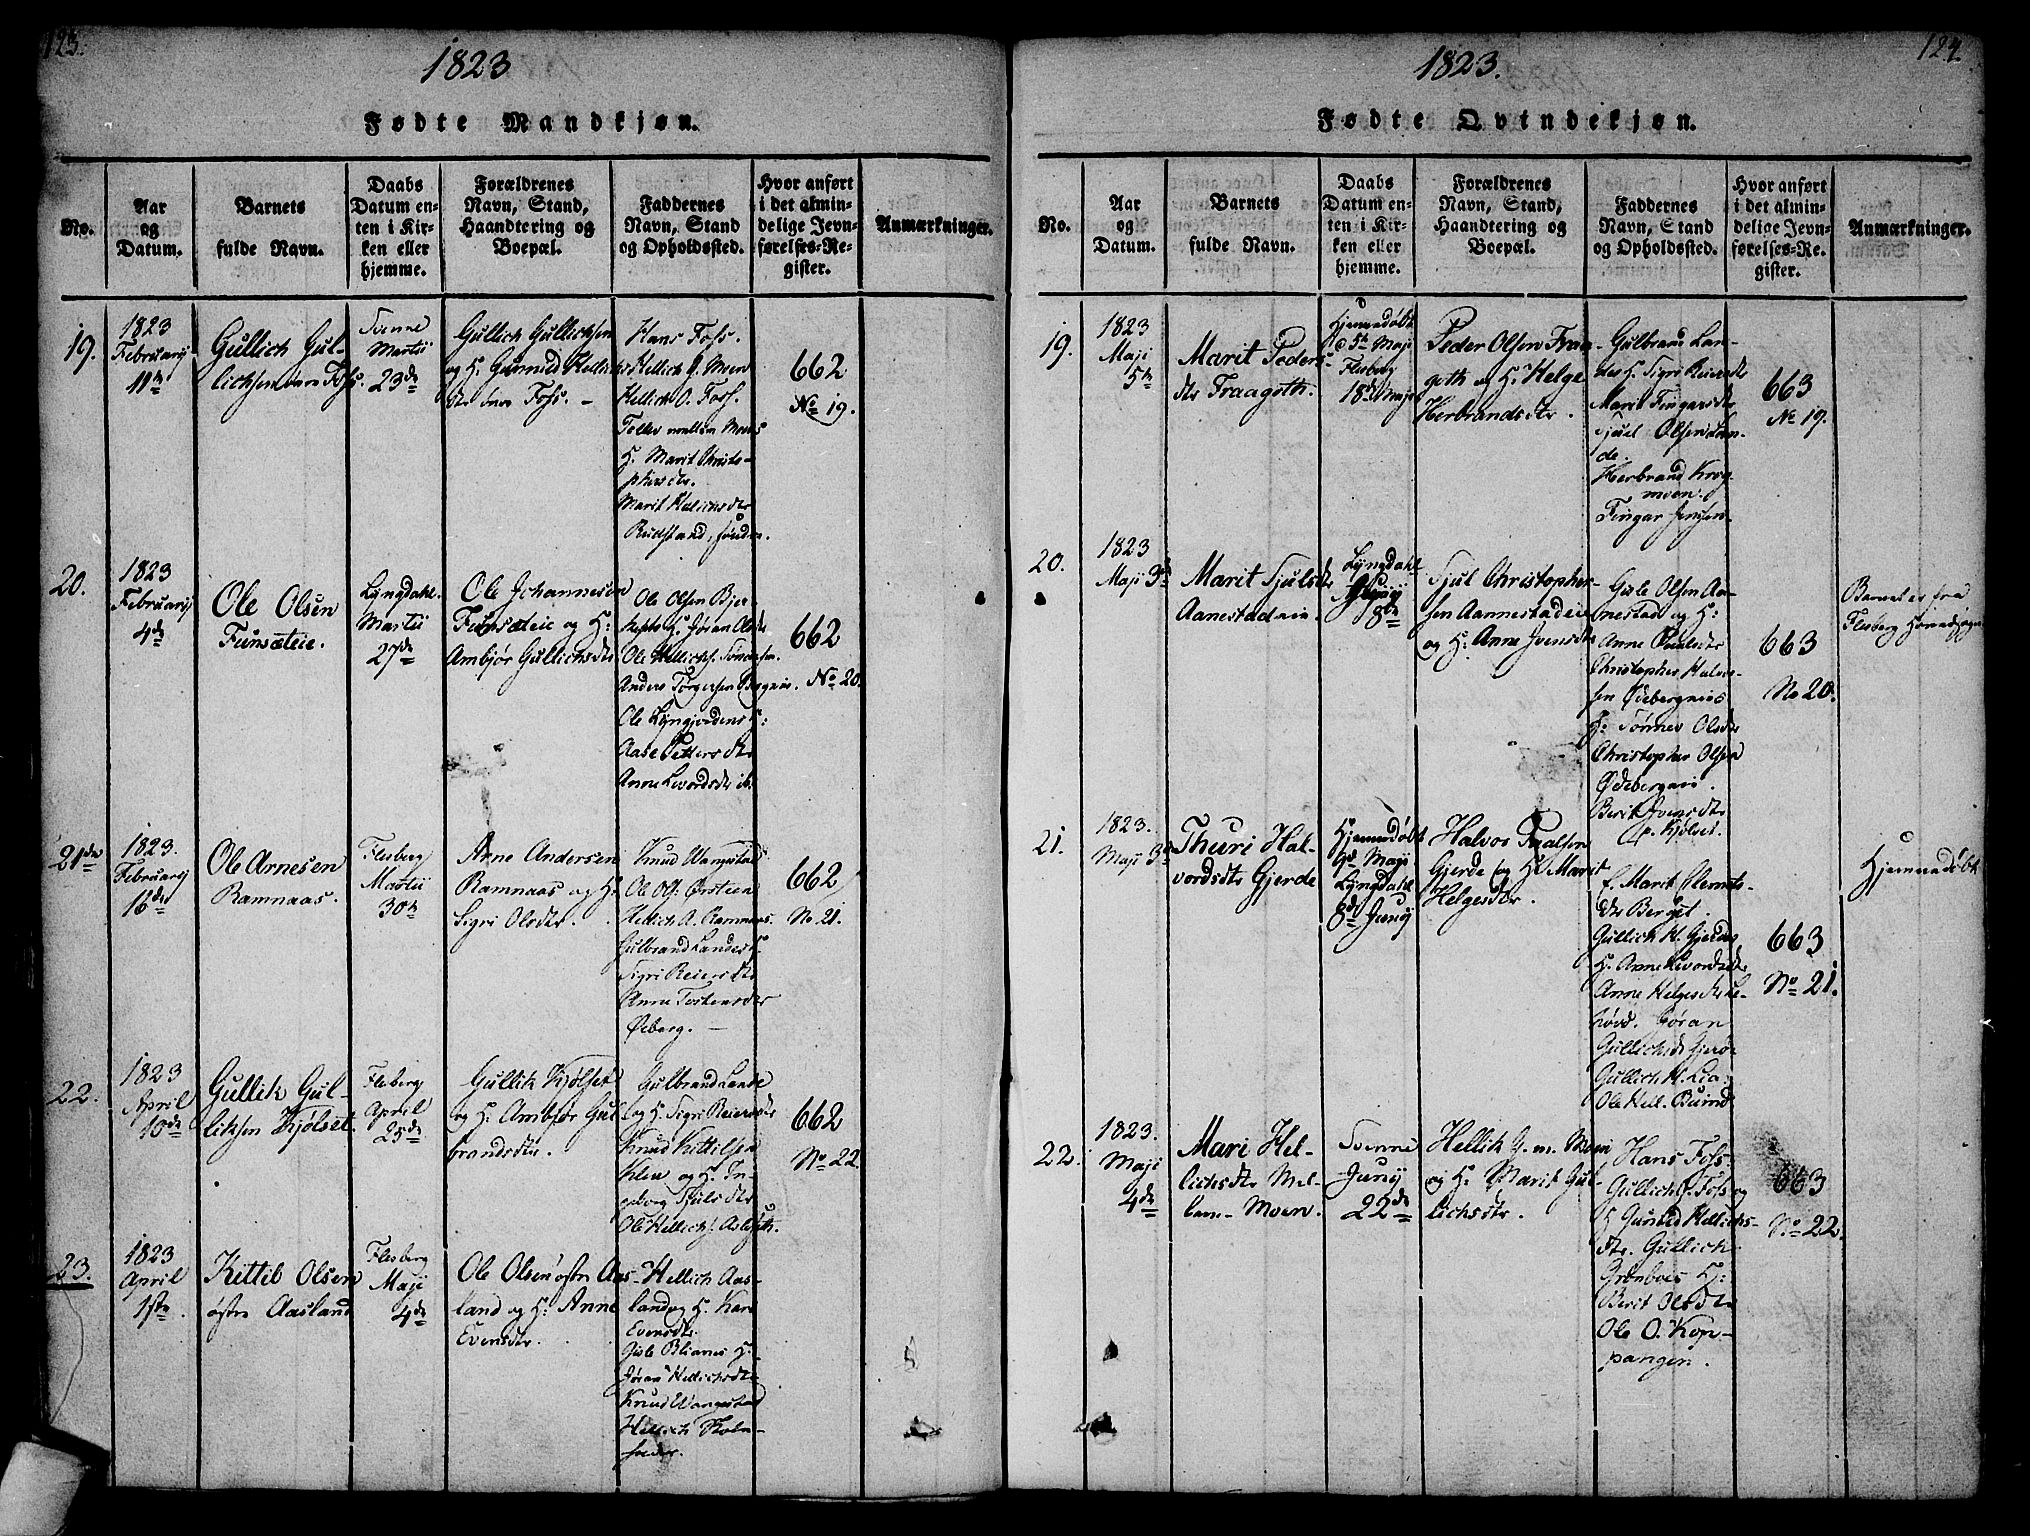 123.
1823
Fødte Mandkjøn.
No.
Aar
og
Datum.
Barnets
fulde Navn.
Daabs
Datum en-
ten i Kir-
ken eller
hjemme.
Forældrenes
Navn, Stand,
Haandtering og
Boepæl.
Faddernes
Navn, Stand
og Opholdssted.
Hvor anført
i det almin-
delige Jevn-
førelses-Re-
gister.
Anmærkninger.
19.
1823
Februarij
11te
Gullich Gul-
lichsen Foss.
Svenne
Martii
23de
Gullich Gullichsen
og H. Gunnild Hellichs
dtr Foss. –
Hans Foss.
Hellich G. Moen
Hellich O. Foss.
Tollev mellem Moens
H. Marit Christo-
phersdtr.
Marit Hellichsdtr
Rudstand,
662
No 19.
20.
1823
Februarij
4de
Ole Olsen
Funsæteie.
Lyngdahl.
Martii
27de
Ole Johannesen
Funsæteie og H:
Ambjør Gullichsdtr
Ole Olsen Bjer-
H. Jøran Olsdtr
Ole Hellichs.
Anders Torgersen
Ole H:
Aase Pettersdtr
Anne Levordsdtr ib.
662
No 20.
21de
1823.
Februarij
16de
Ole Arnesen
Ramnaas.
Flesberg
Martii
30te
Arne Andersen
Ramnaas og H.
Sigri Olsdtr.
Knud Wangestad
Ole Ols: Ørsteen
Hellich A. Ramnaas.
Gulbrand Landes H.
Sigri Reiersdtr
Anne Torstensdtr
Øeberg. –
662
No. 21.
22.
1823
April
10de
Gullik Gul-
liksen Kjølset.
Flesberg
April
25de
Gullik Kjølset
og H. Ambjør Gul-
brandsdtr.
Gulbrand Lande
og H. Sigri Reiersdtr
Knud Kittilsen
og H. In-
geborg Sjulsdtr
Ole Hellichs.
662
No 22.
23.
1823
April
1ste
Kittil Olsen
østre Aasland
Flesberg
Maji
4de
Ole Olsen østre Aas-
land og H: Anne
Evensdtr.
Hellich Aas-
land og H. Kari
Evensdtr.
Gisle H.
Jøran Hellichsdtr
Knud Wangestad
Hellich
124.
1823.
Fødte Qvindekjøn.
No.
Aar
og
Datum.
Barnets
fulde Navn.
Daabs
Datum en-
ten i Kir-
ken eller
hjemme.
Forældrenes
Navn, Stand,
Haandtering og
Boepæl.
Faddernes
Navn, Stand
og Opholdssted.
Hvor anført
i det almin-
delige Jevn-
førelses-Re-
gister.
Anmærkninger.
19.
1823
Maji
5te
Marit Peders-
dtr Traagoth.
Hjemmedøbt
5te Maji
Flesberg
18de Maji
Peder Olsen Traa-
goth og H. Helge
Herbrandsdtr.
Gulbrand Lan-
des H. Sigri Reiersdtr
Marit Fingarsdtr
Sjul Olsen Lan-
de.
Herbrand Krog-
moen.
Fingar Jensen
663
No 19.
20.
1823
Maji 3de
Marit Sjulsdtr
Aanestadeie.
Lyngdahl
Junij
8de
Sjul Christopher-
sen Aannestadeie
og H: Anne Ivensdtr
Gisle Olsen Aa-
nestad og H:
Anne Poulsdtr
Christopher Halvor-
sen Ødebergeie
H: Tønnev Olsdtr
Christopher Olsen
Ødebergeie.
Berit Ivensdtr
Kjølset.
663
No 20.
Barnet er fra
Flesberg Hovedsogn
21.
1823.
Maji 3de
Thuri Hal-
vordsdtr Gjerde
Hjemmedøbt
9de Maji
Lyngdahl
8de Junij
Halvor Paalsen
Gjerde og H. Marit
Helgesdtr.
Marit Clemets-
dtr Berget.
Gullich H. Gjerdes
H. Anne Levordsdtr
Anne Helgesdtr
Jøran
Gullichsdtr Gjerde
Gullich H. Lia.
Ole Hell. Buind
663
No 21.
Hjemmedøbt
22.
1823.
Maji
4de
Mari Hel-
lichsdtr Mel-
lem-Moen.
Svenne
Junij
22de
Hellik G. m. Moen
og H. Marit Gul-
lichsdtr.
Hans Foss.
Gullich G. Foss og
H Gunild Hellichs-
dtr. Gullich
Grønboes H:
Berit Olsdtr
Ole O. Kop-
pangen.
663
No 22.